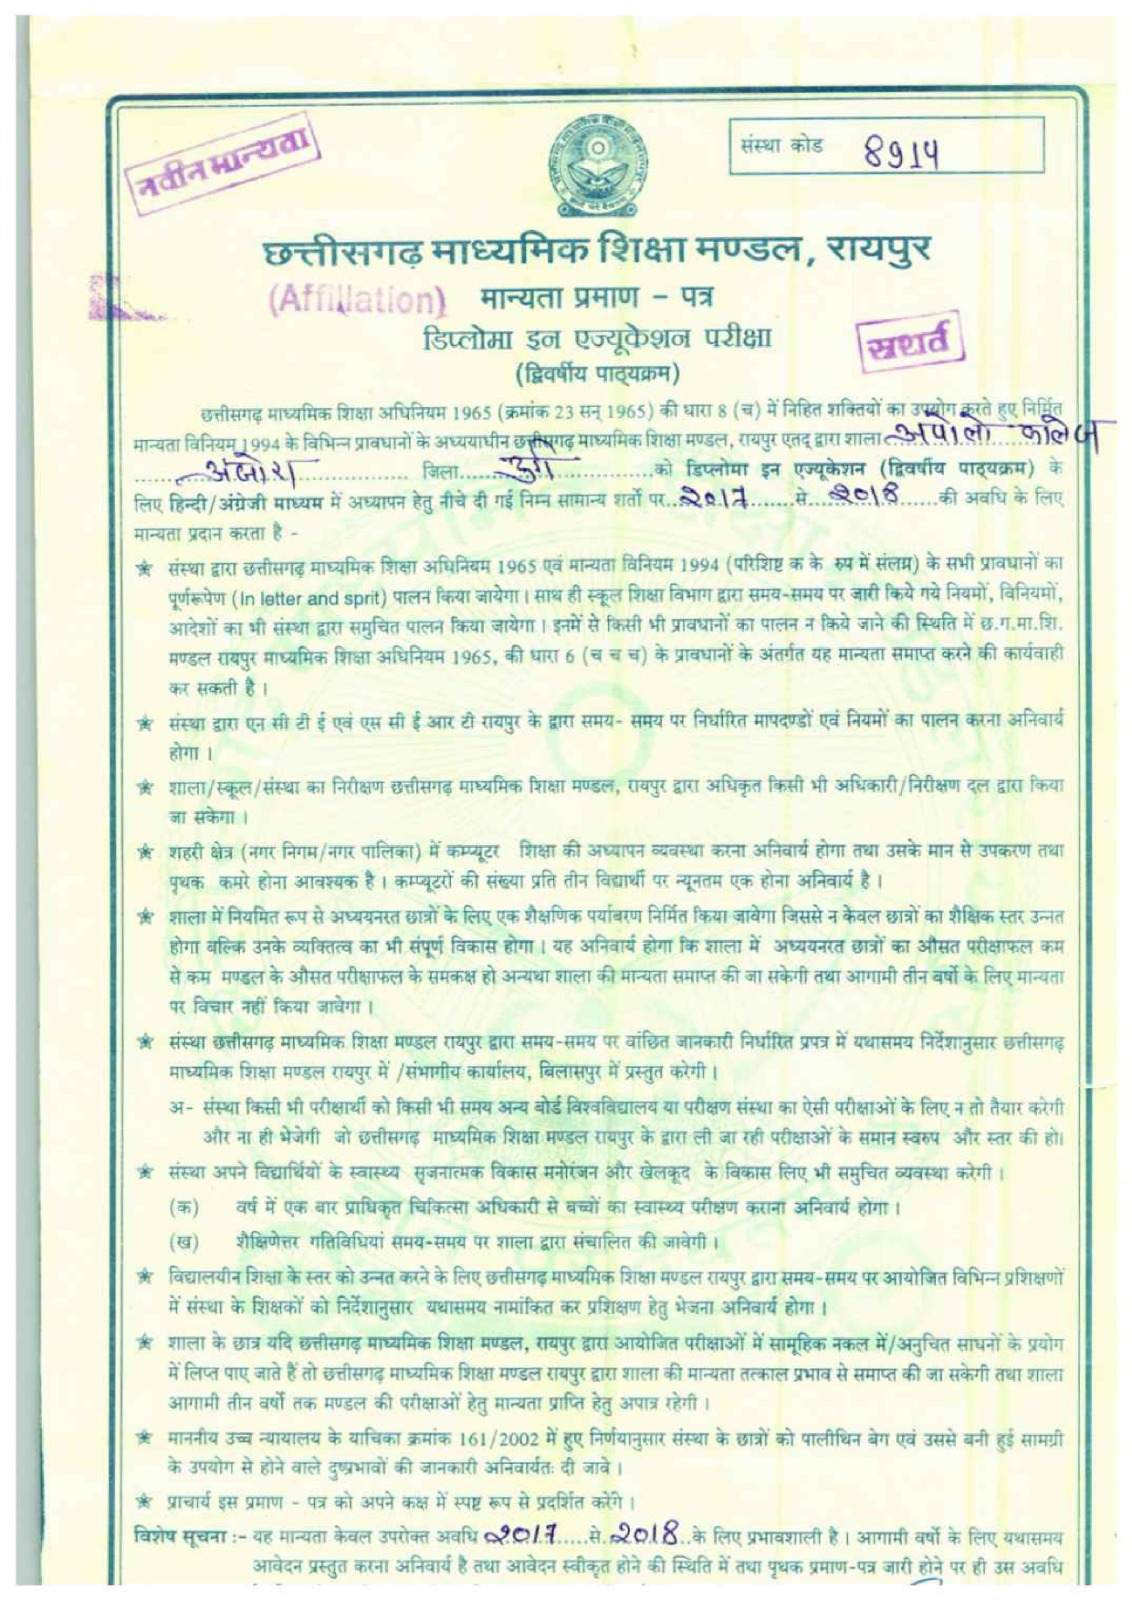 नवीन मान्यता
संस्था कोड 8914
छत्तीसगढ़ माध्यमिक शिक्षा मण्डल, रायपुर
(Affiliation) मान्यता प्रमाण - पत्र
डिप्लोमा इन एज्यूकेशन परीक्षा
सशर्त
(द्विवर्षीय पाठ्यक्रम)
छत्तीसगढ़ माध्यमिक शिक्षा अधिनियम 1965 (क्रमांक 23 सन् 1965) की धारा 8 (च) में निहित शक्तियों का उपयोग करते हुए निर्मित
मान्यता विनियम 1994 के विभिन्न प्रावधानों के अध्ययाधीन छत्तीसगढ़ माध्यमिक शिक्षा मण्डल, रायपुर एतद् द्वारा शाला अपोलो कालेज
अंजोरा जिला दुर्ग को डिप्लोमा इन एज्यूकेशन (द्विवर्षीय पाठ्यक्रम) के
लिए हिन्दी/अंग्रेजी माध्यम में अध्यापन हेतु नीचे दी गई निम्न सामान्य शर्तो पर 2017 से 2018 की अवधि के लिए
मान्यता प्रदान करता है -
संस्था द्वारा छत्तीसगढ़ माध्यमिक शिक्षा अधिनियम 1965 एवं मान्यता विनियम 1994 (परिशिष्ट क के रुप में संलग्न) के सभी प्रावधानों का
पूर्णरूपेण (In letter and sprit) पालन किया जायेगा। साथ ही स्कूल शिक्षा विभाग द्वारा समय-समय पर जारी किये गये नियमों, विनियमों,
आदेशों का भी संस्था द्वारा समुचित पालन किया जायेगा। इनमें से किसी भी प्रावधानों का पालन न किये जाने की स्थिति में छ.ग.मा.शि.
मण्डल रायपुर माध्यमिक शिक्षा अधिनियम 1965, की धारा 6 (च च च) के प्रावधानों के अंतर्गत यह मान्यता समाप्त करने की कार्यवाही
कर सकती है।
संस्था द्वारा एन सी टी ई एवं एस सी ई आर टी रायपुर के द्वारा समय- समय पर निर्धारित मापदण्डों एवं नियमों का पालन करना अनिवार्य
होगा।
शाला/स्कूल/संस्था का निरीक्षण छत्तीसगढ़ माध्यमिक शिक्षा मण्डल, रायपुर द्वारा अधिकृत किसी भी अधिकारी/निरीक्षण दल द्वारा किया
जा सकेगा।
शहरी क्षेत्र (नगर निगम/नगर पालिका) में कम्प्यूटर शिक्षा की अध्यापन व्यवस्था करना अनिवार्य होगा तथा उसके मान से उपकरण तथा
पृथक कमरे होना आवश्यक है। कम्प्यूटरों की संख्या प्रति तीन विद्यार्थी पर न्यूनतम एक होना अनिवार्य है।
शाला में नियमित रूप से अध्ययनरत छात्रों के लिए एक शैक्षणिक पर्यावरण निर्मित किया जावेगा जिससे न केवल छात्रों का शैक्षिक स्तर उन्नत
होगा बल्कि उनके व्यक्तित्व का भी संपूर्ण विकास होगा। यह अनिवार्य होगा कि शाला में अध्ययनरत छात्रों का औसत परीक्षाफल कम
से कम मण्डल के औसत परीक्षाफल के समकक्ष हो अन्यथा शाला की मान्यता समाप्त की जा सकेगी तथा आगामी तीन वर्षो के लिए मान्यता
पर विचार नहीं किया जावेगा।
संस्था छत्तीसगढ़ माध्यमिक शिक्षा मण्डल रायपुर द्वारा समय-समय पर वांछित जानकारी निर्धारित प्रपत्र में यथासमय निर्देशानुसार छत्तीसगढ़
माध्यमिक शिक्षा मण्डल रायपुर में /संभागीय कार्यालय, बिलासपुर में प्रस्तुत करेगी।
अ- संस्था किसी भी परीक्षार्थी को किसी भी समय अन्य बोर्ड विश्वविद्यालय या परीक्षण संस्था का ऐसी परीक्षाओं के लिए न तो तैयार करेगी
और ना ही भेजेगी जो छत्तीसगढ़ माध्यमिक शिक्षा मण्डल रायपुर के द्वारा ली जा रही परीक्षाओं के समान स्वरुप और स्तर की हो।
संस्था अपने विद्यार्थियों के स्वास्थ्य सृजनात्मक विकास मनोरंजन और खेलकूद के विकास लिए भी समुचित व्यवस्था करेगी।
(क) वर्ष में एक बार प्राधिकृत चिकित्सा अधिकारी से बच्चों का स्वास्थ्य परीक्षण कराना अनिवार्य होगा।
(ख) शैक्षिणेत्तर गतिविधियां समय-समय पर शाला द्वारा संचालित की जावेगी।
विद्यालयीन शिक्षा के स्तर को उन्नत करने के लिए छत्तीसगढ़ माध्यमिक शिक्षा मण्डल रायपुर द्वारा समय-समय पर आयोजित विभिन्न प्रशिक्षणों
में संस्था के शिक्षकों को निर्देशानुसार यथासमय नामांकित कर प्रशिक्षण हेतु भेजना अनिवार्य होगा।
शाला के छात्र यदि छत्तीसगढ़ माध्यमिक शिक्षा मण्डल, रायपुर द्वारा आयोजित परीक्षाओं में सामूहिक नकल में/अनुचित साधनों के प्रयोग
में लिप्त पाए जाते हैं तो छत्तीसगढ़ माध्यमिक शिक्षा मण्डल रायपुर द्वारा शाला की मान्यता तत्काल प्रभाव से समाप्त की जा सकेगी तथा शाला
आगामी तीन वर्षो तक मण्डल की परीक्षाओं हेतु मान्यता प्राप्ति हेतु अपात्र रहेगी।
माननीय उच्च न्यायालय के याचिका क्रमांक 161/2002 में हुए निर्णयानुसार संस्था के छात्रों को पालीथिन बेग एवं उससे बनी हुई सामग्री
के उपयोग से होने वाले दुष्प्रभावों की जानकारी अनिवार्यतः दी जावे।
प्राचार्य इस प्रमाण - पत्र को अपने कक्ष में स्पष्ट रूप से प्रदर्शित करेंगे।
विशेष सूचना :- यह मान्यता केवल उपरोक्त अवधि 2017 से 2018 के लिए प्रभावशाली है। आगामी वर्षो के लिए यथासमय
आवेदन प्रस्तुत करना अनिवार्य है तथा आवेदन स्वीकृत होने की स्थिति में तथा पृथक प्रमाण-पत्र जारी होने पर ही उस अवधि